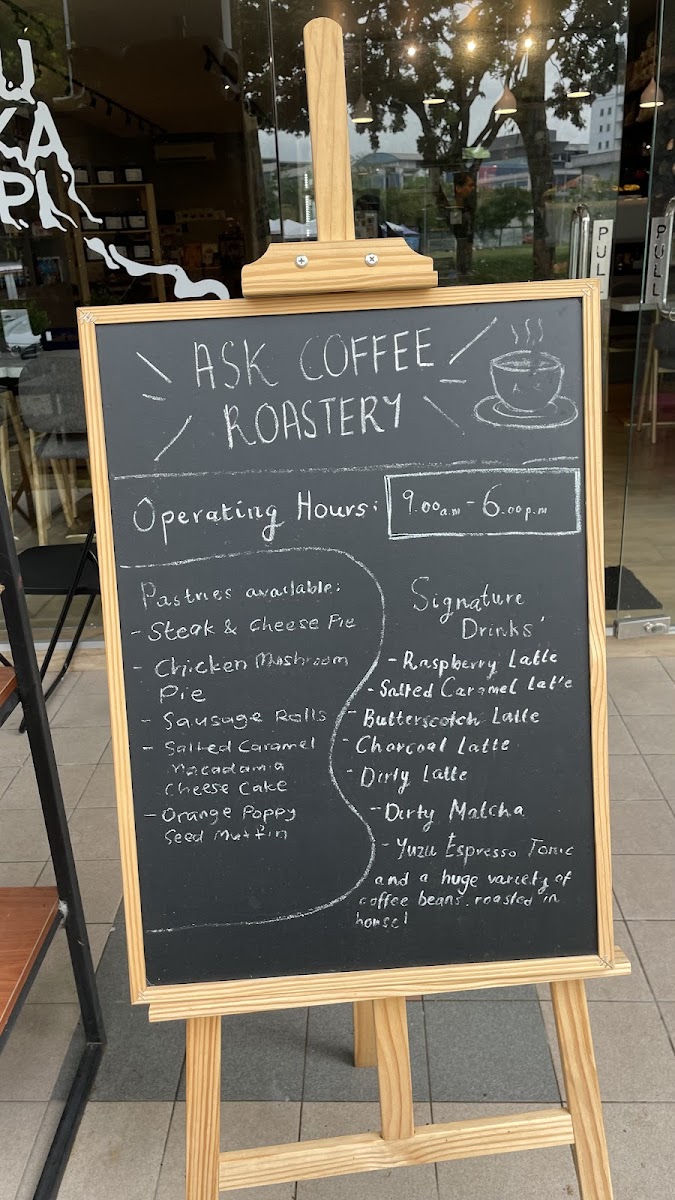 U
KA
PI
PULL
PULL
ASK COFFEE
ROASTERY
Operating Hours: 9.00a.m - 6.00p.m
Pastries available:
- Steak & Cheese Pie
- Chicken Mushroom
Pie
- Sausage Rolls
- Salted Caramel
Macadamia
Cheese Cake
- Orange Poppy
Seed Muffin
Signature
Drinks
- Raspberry Latte
- Salted Caramel Latte
- Butterscotch Latte
- Charcoal Latte
- Dirty Latte
- Dirty Matcha
- Yuzu Espresso Tonic
and a huge variety of
coffee beans. roasted in
house!